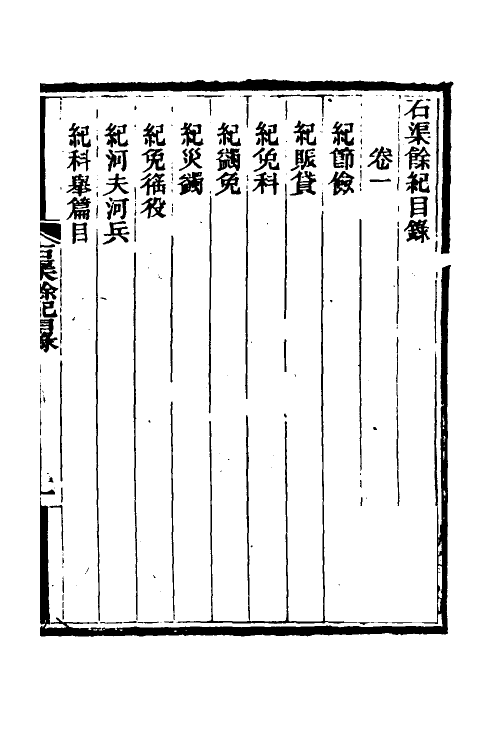 石渠餘紀目錄
卷一
紀節儉
紀賑貸
紀免科
紀蠲免
紀災蠲
紀免徭役
紀河夫河兵
紀科舉篇目
石渠餘紀目錄
一